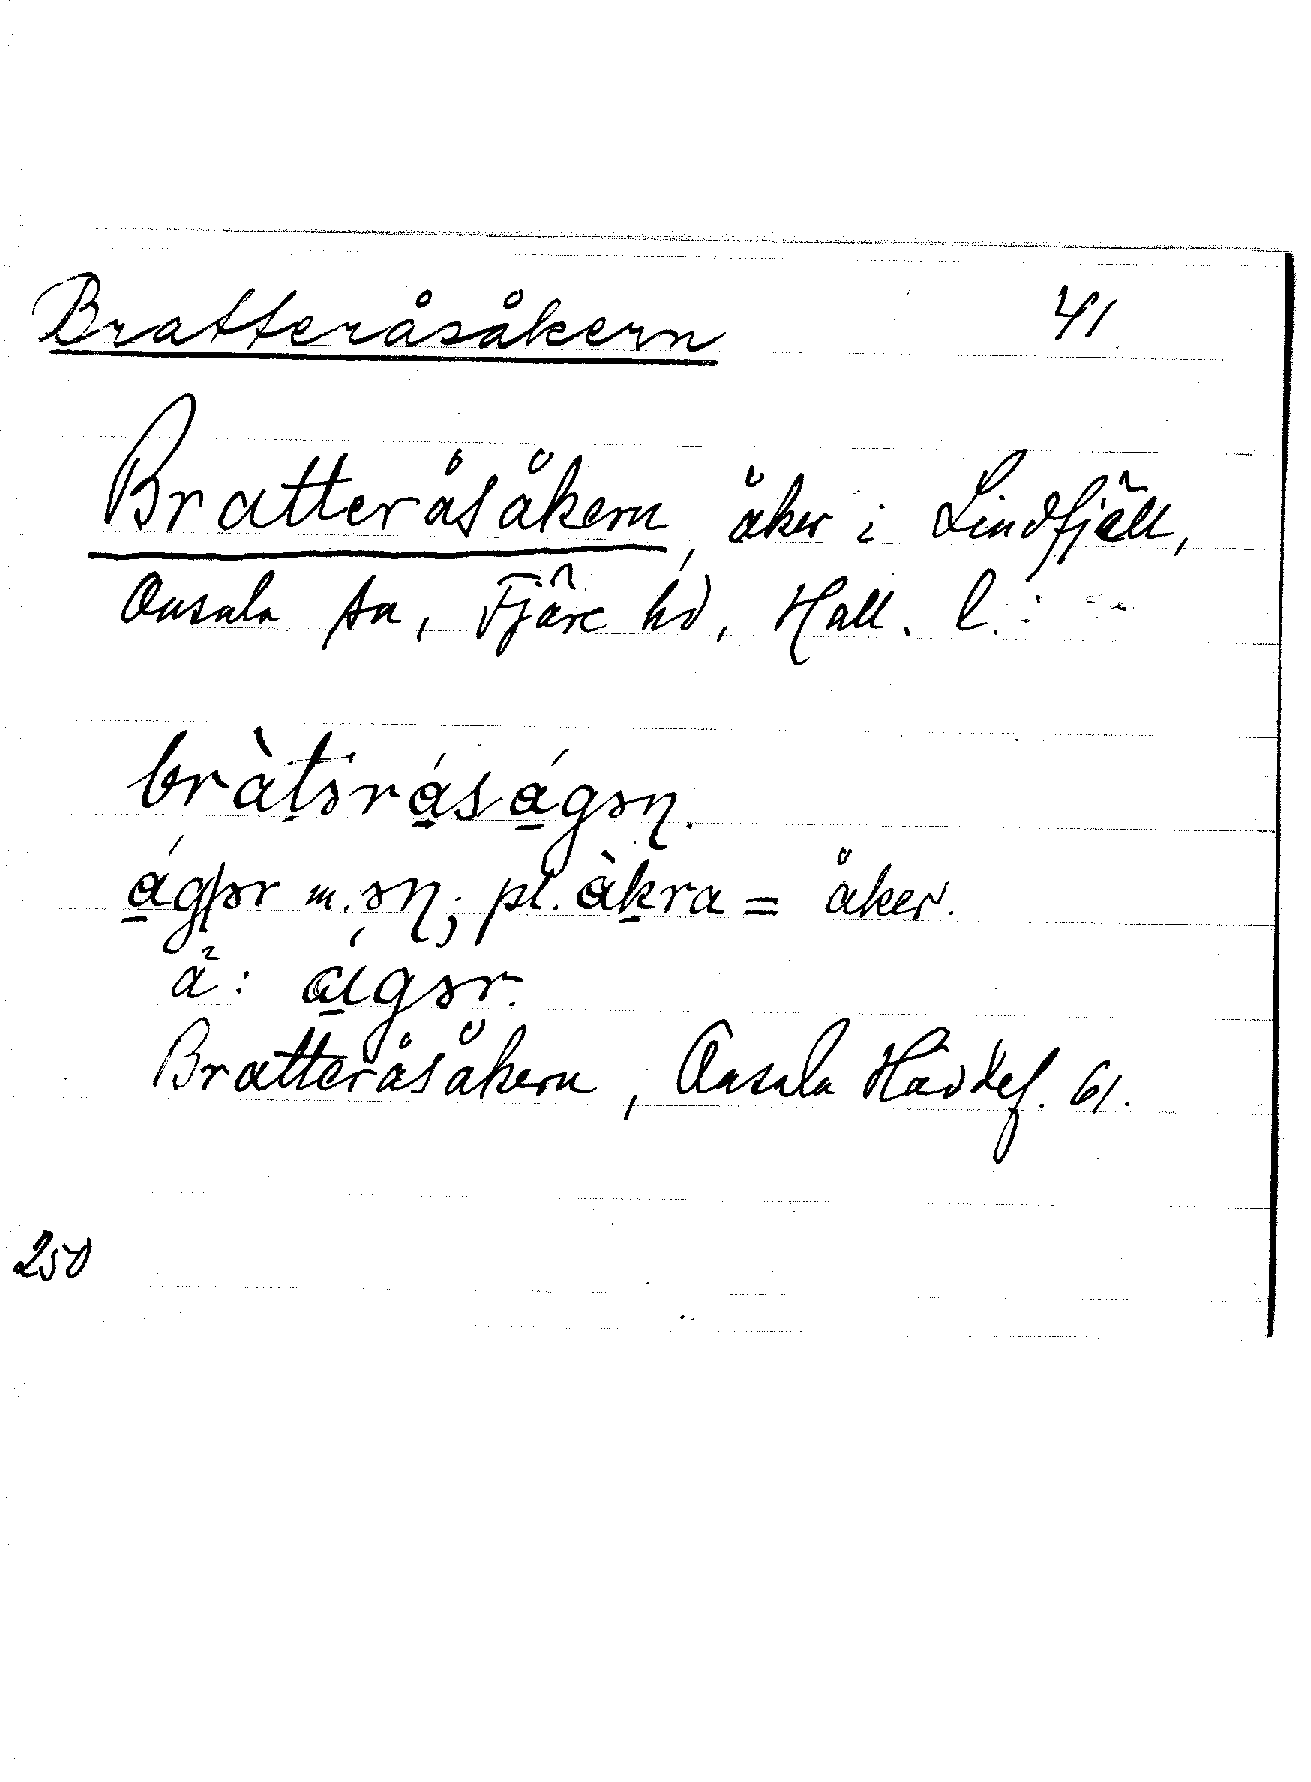 Bratteråsåkern 41
Bratteråsåkern, åker i Lindfjäll,
Onsala sn, Fjäre hd, Hall. l.:
bràtəráságəɳ.
ágər m. əɳ; pl. àkra = åker.
a²: áıgər.
Bratteråsåkern, Onsala 61.
250